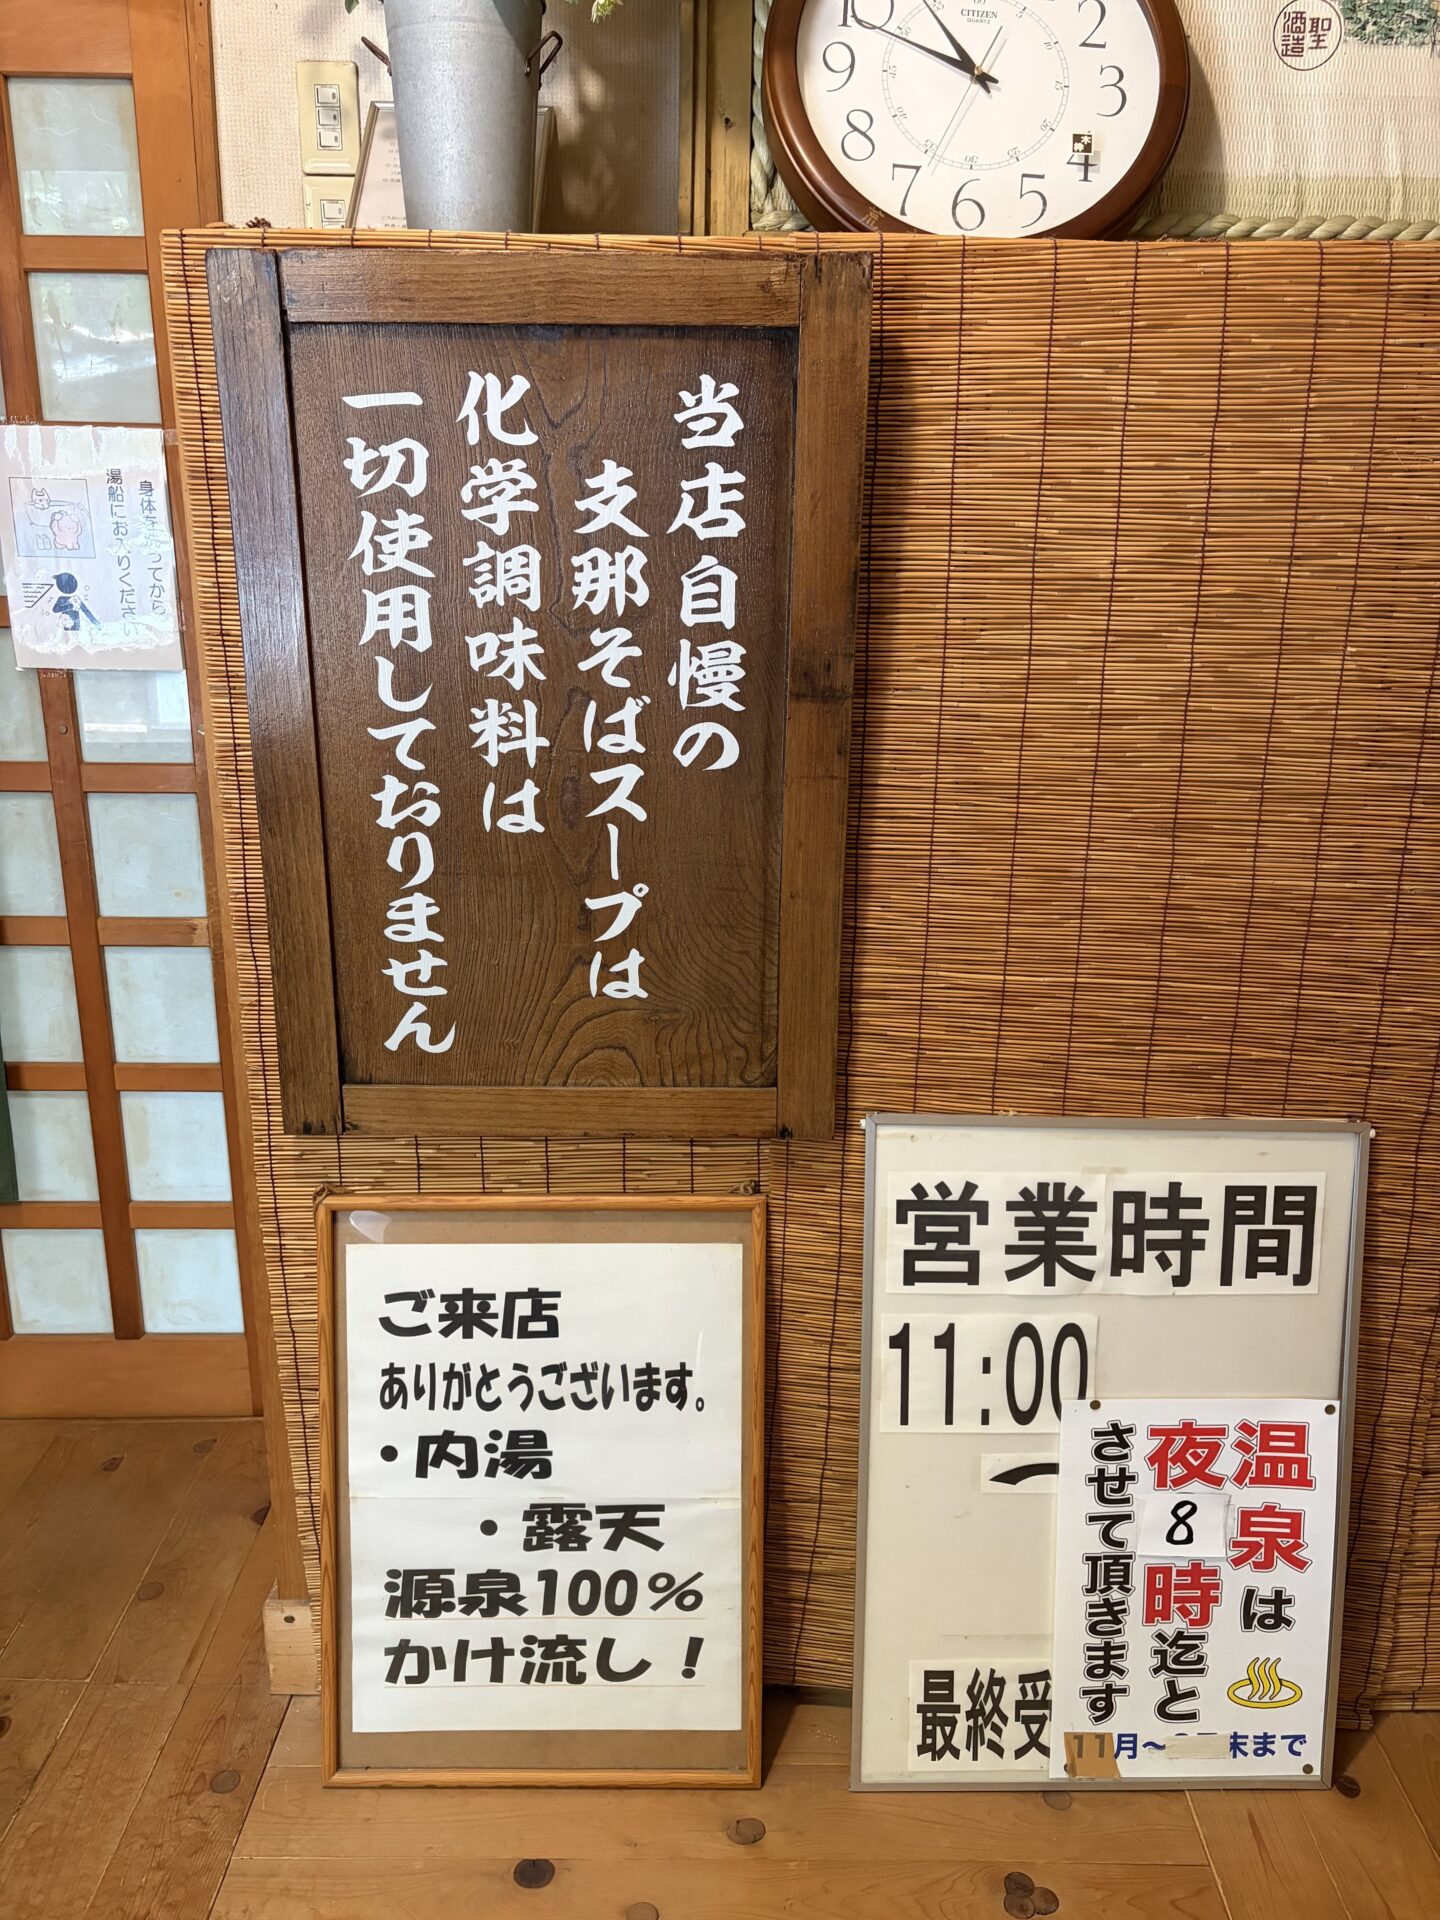 CITIZEN
QUARTZ
10
2
9
3
8
4
7
6
5
聖
酒造
当店自慢の
支那そばスープは
化学調味料は
一切使用しておりません
身体を洗ってから
湯船にお入りください
ご来店
ありがとうございます。
・内湯
・露天
源泉100%
かけ流し!
営業時間
11:00
最終受
温泉は
夜8時迄と
させて頂きます
11月～
末まで